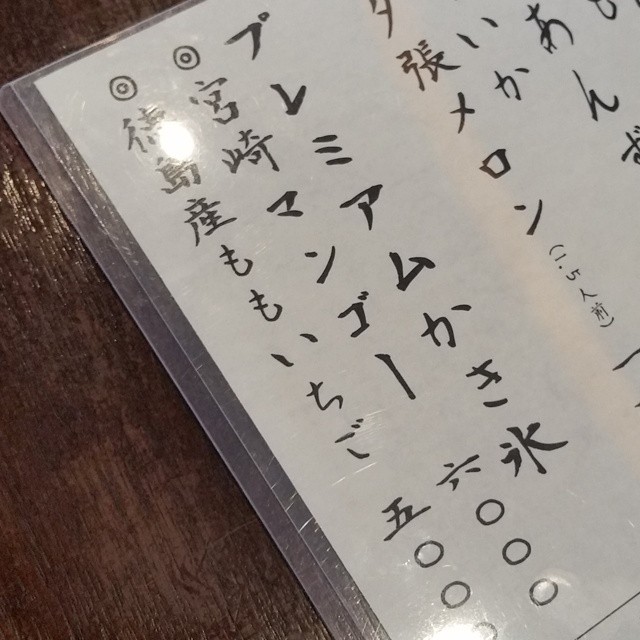 あん
いか
夕張メロン(1.5人前)
プレミアムかき氷
◎宮崎マンゴー 六〇〇〇
◎徳島産ももいちご 五〇〇